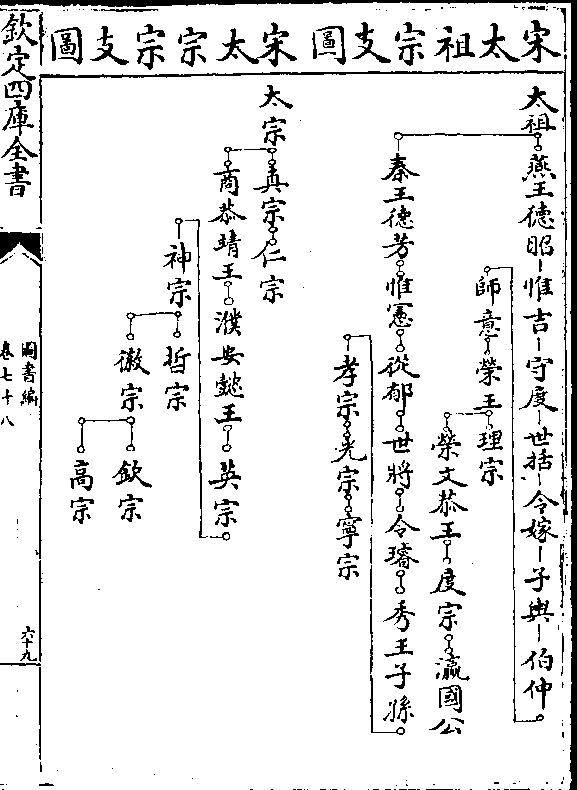 宋太祖宗支圖
宋太宗宗支圖
太祖 燕王德昭 惟吉 守度 世括 令嫁 子與 伯仲
師意 榮王 理宗
榮文恭王 度宗 瀛國公
秦王德芳 惟憲 從郁 世將 令璿 秀王子
孝宗 光宗 寧宗
太宗 真宗 仁宗
商恭靖王 濮安懿王 英宗
神宗 哲宗
徽宗 欽宗
高宗
欽定四庫全書
圖書編
卷七十八
六十九